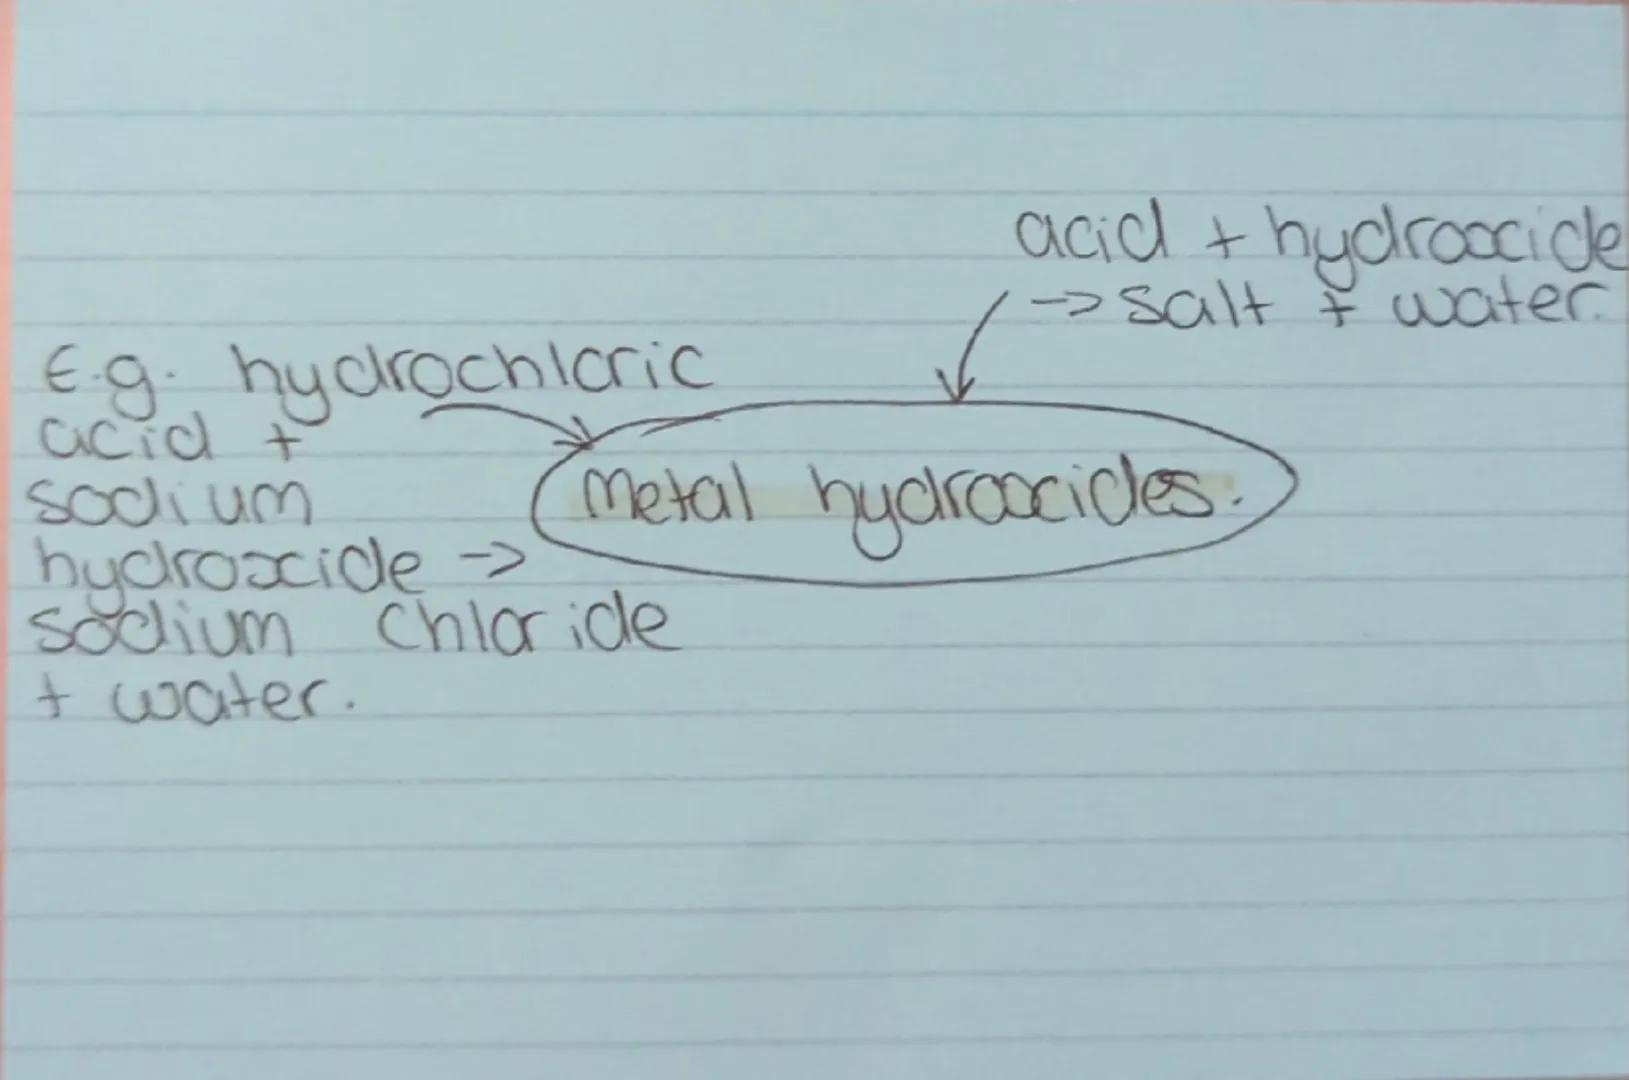 acid + hydroxide
-> salt + water.
E.g. hydrochloric
acid +
sodium
hydroxide ->
sodium chloride
+ water.
Metal hydroxides.